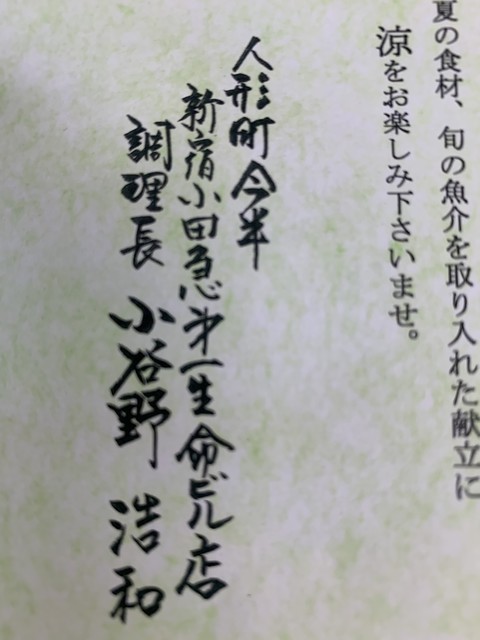 夏の食材、旬の魚介を取り入れた献立に
涼をお楽しみ下さいませ。
人形町今半
新宿小田急第一生命ビル店
調理長 小谷野 浩和